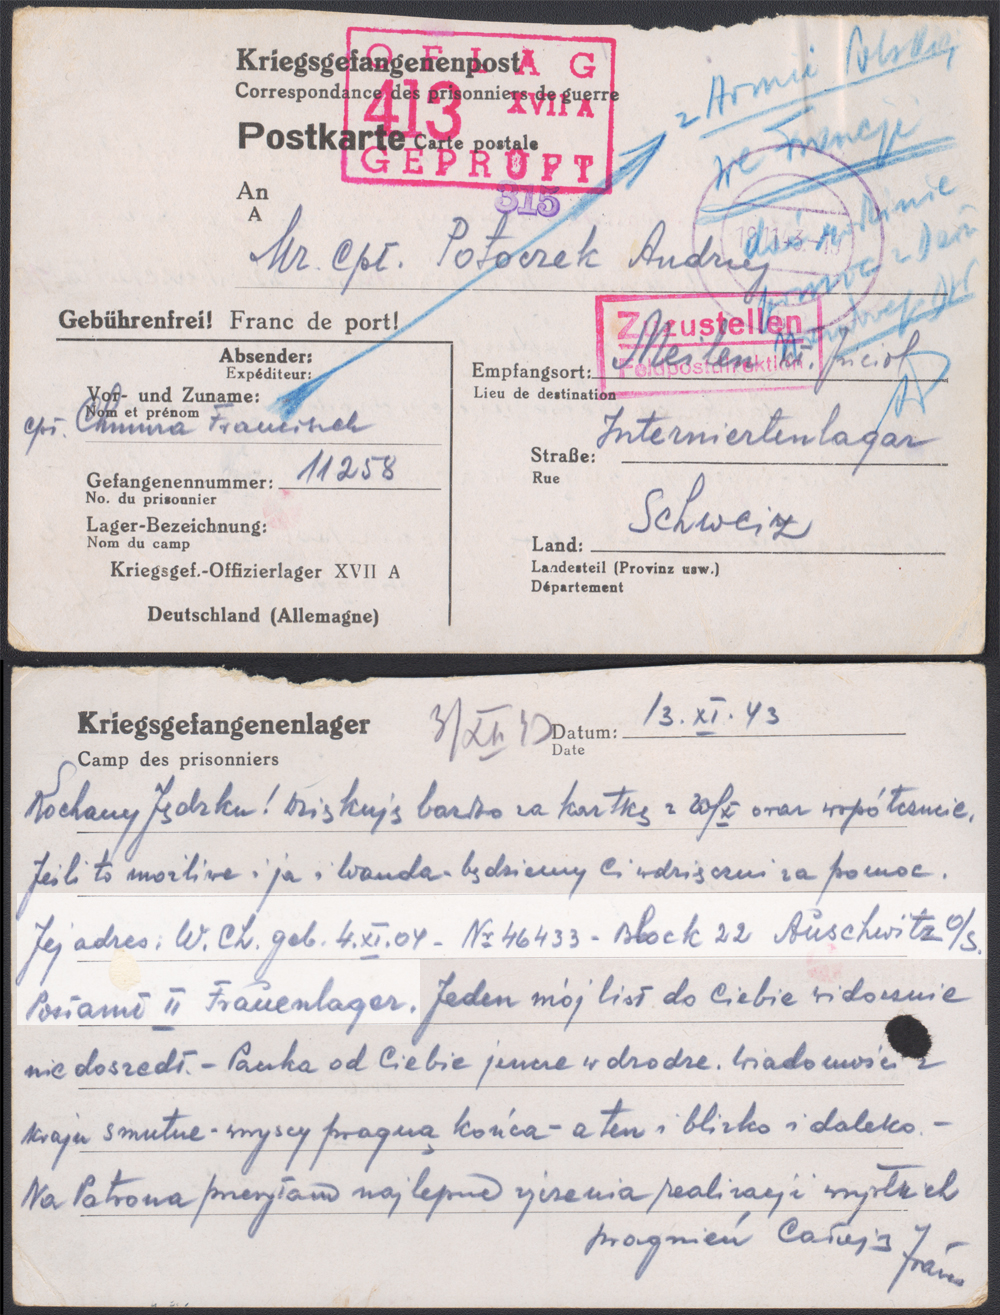 Kriegsgefangenenpost
Correspondance des prisonniers de guerre
OFLAG
413 XVII A
GEPRÜFT
315
Postkarte Carte postale
z Armii Polskiej
we Francji
An
A
Mr. cpt. Potoczek Andrzej
Gebührenfrei! Franc de port!
Absender:
Expéditeur:
Vor- und Zuname:
Nom et prénom
cpt. Chmura Franciszek
Gefangenennummer: 11258
No. du prisonnier
Lager-Bezeichnung:
Nom du camp
Kriegsgef.-Offizierlager XVII A
Deutschland (Allemagne)
Zuzustellen
Feldpostdirektion
Empfangsort:
Lieu de destination
Straße: Interniertenlagar
Rue
Land: Schweiz
Landesteil (Provinz usw.)
Département
Kriegsgefangenenlager
Camp des prisonniers
3/XII 43
Datum: 13.XI.43
Date
Kochany Jędrku! Dziękuję bardzo za kartkę z 20/X oraz współczucie.
Jeśli to możliwe i ja i Wanda będziemy Ci wdzięczni za pomoc.
Jej adres: W. Ch. geb. 4.XI.04 - Nr 46433 - Block 22 Auschwitz O/S.
II Frauenlager. Jeden mój list do Ciebie widocznie
nie doszedł. - Paczka od Ciebie jeszcze w drodze. Wiadomości z
kraju smutne - wszyscy pragną końca - a ten i blisko i daleko. -
Na Patrona przesyłam najlepsze życzenia realizacji wszystkich
pragnień Całuję Franc